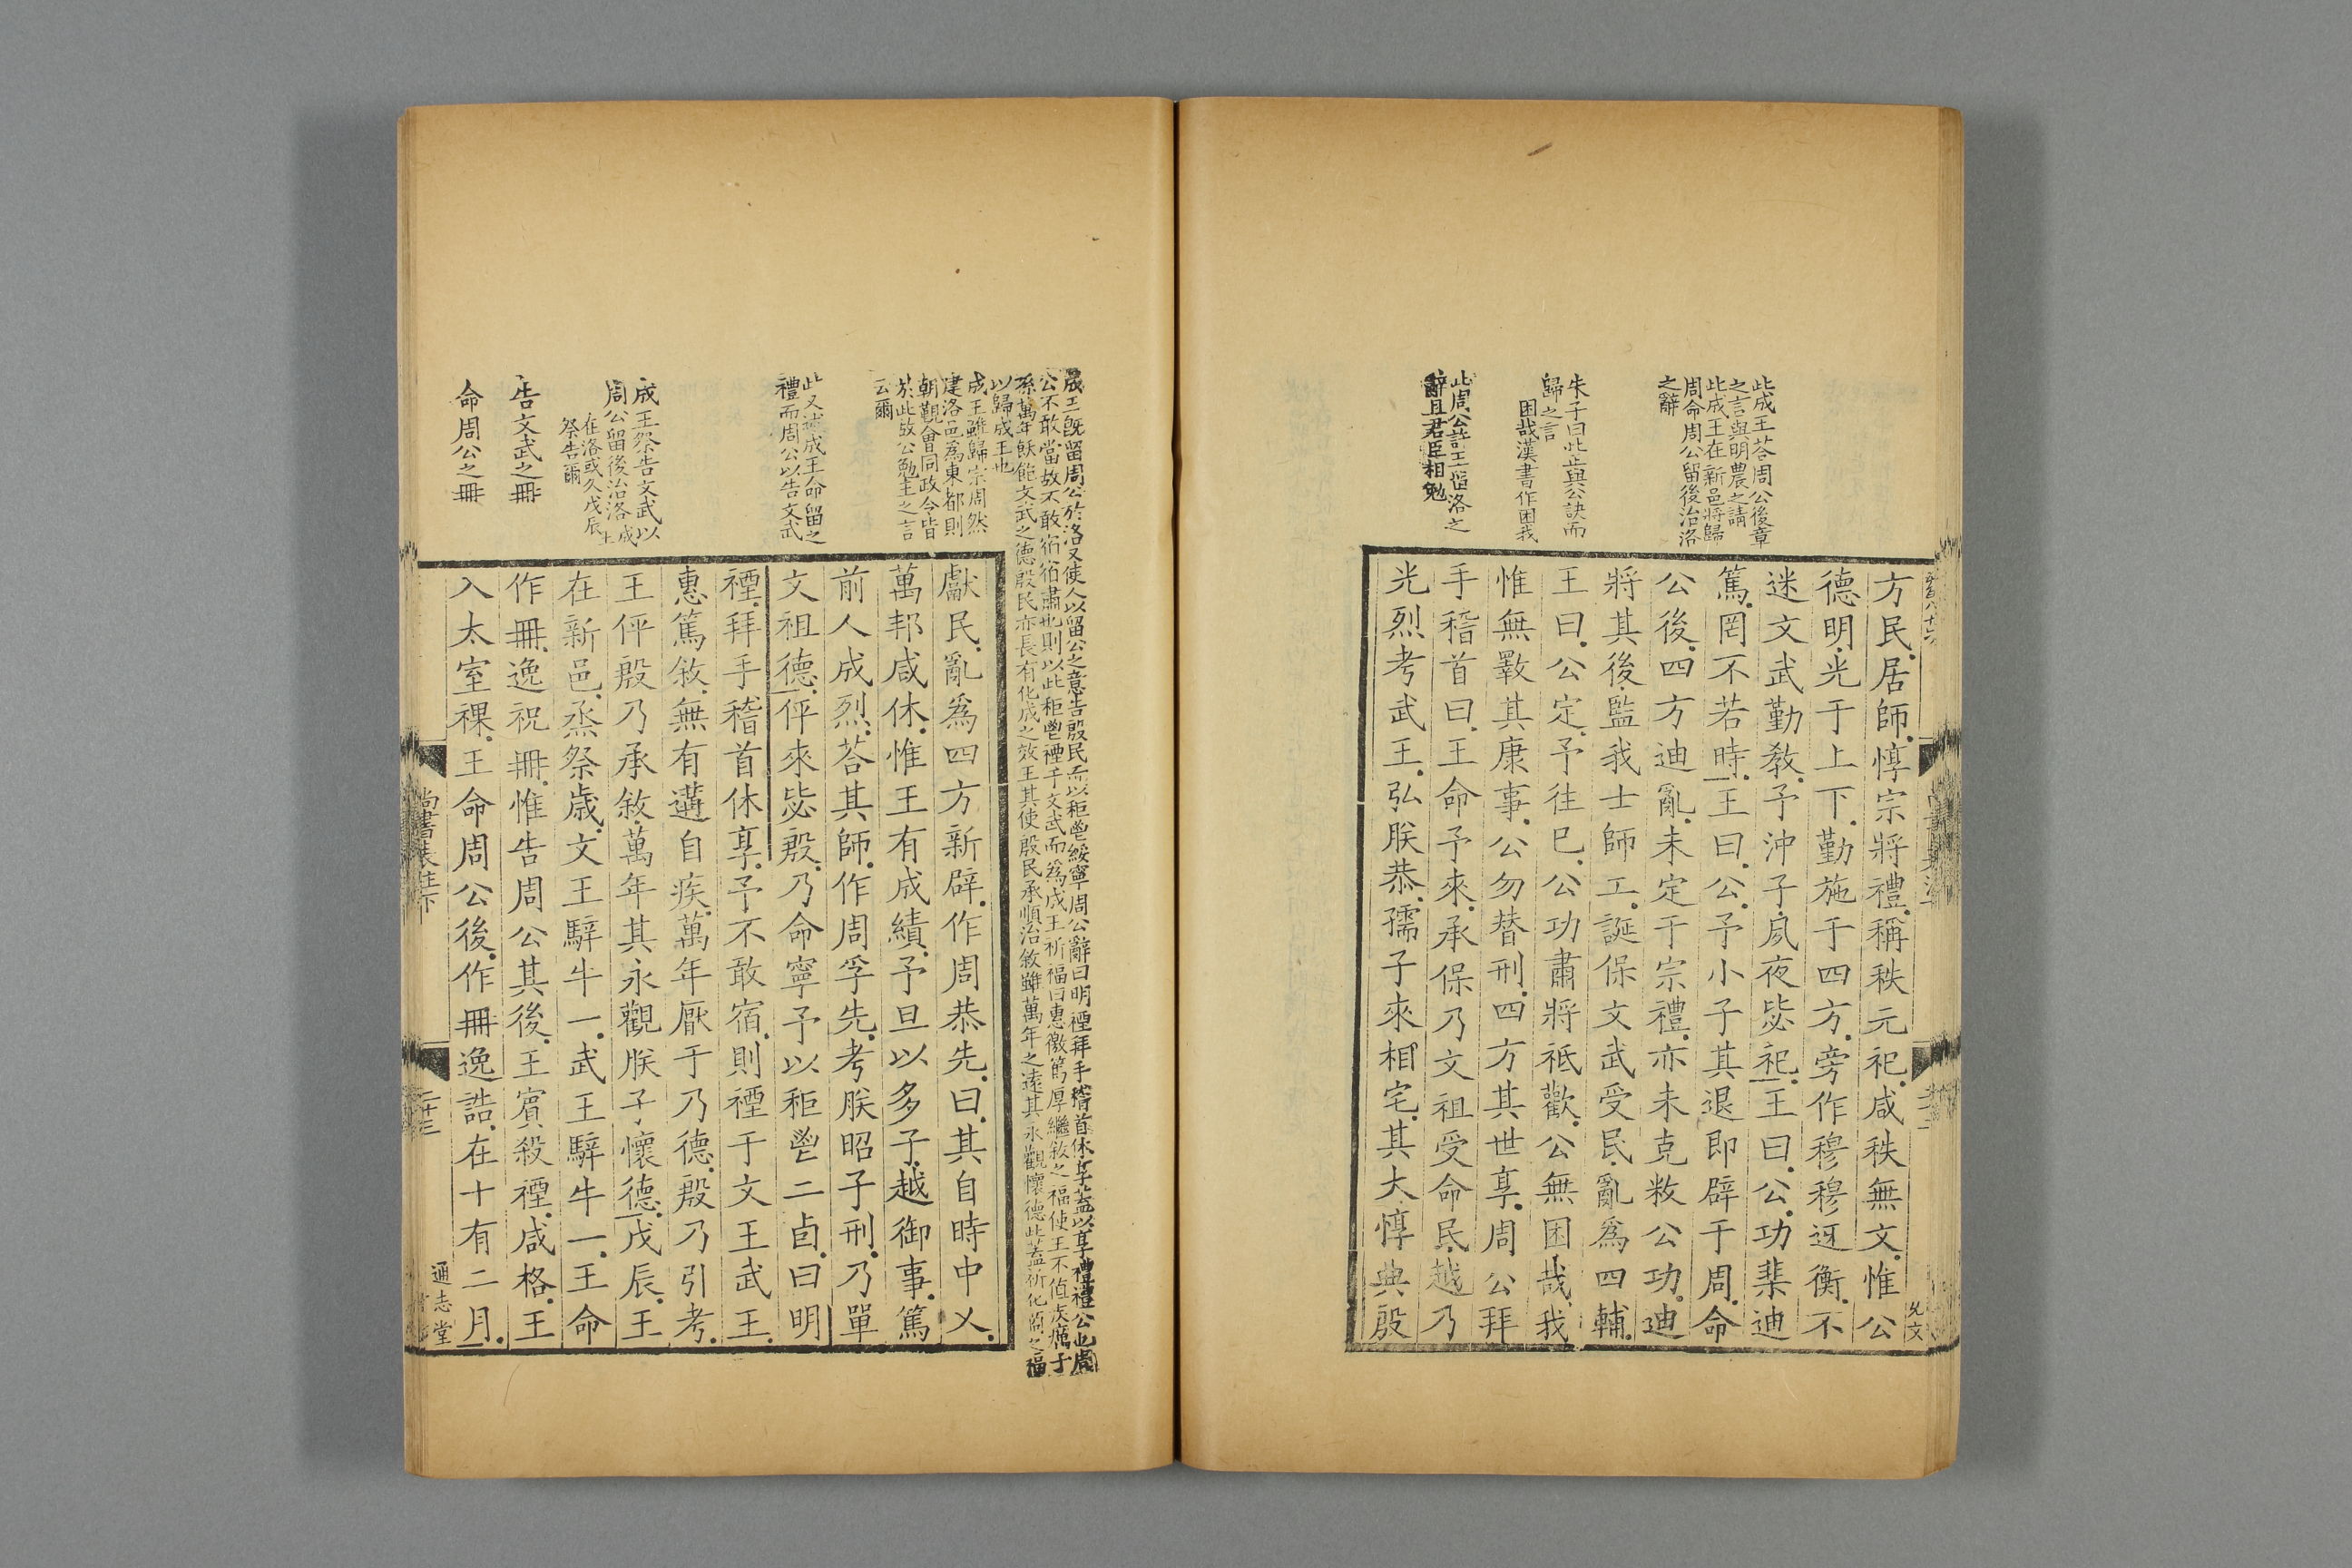 此成王荅周公後章
之言與明農之請
此成王在新邑將歸
周命周公留後治洛
之辭
朱子曰此與公訣而
歸之言
困哉漢書作困我
此周公許王留洛之
辭且君臣相勉
方民居師惇宗將禮稱秩元祀咸秩無文惟公
德明光于上下勤施于四方旁作穆穆迓衡不
迷文武勤教予沖子夙夜毖祀王曰公功棐迪
篤罔不若時王曰公予小子其退即辟于周命
公後四方迪亂未定于宗禮亦未克敉公功迪
將其後監我士師工誕保文武受民亂爲四輔
王曰公定予往已公功肅將祗歡公無困哉我
惟無斁其康事公勿替刑四方其世享周公拜
手稽首曰王命予來承保乃文祖受命民越乃
光烈考武王弘朕恭孺子來相宅其大惇典殷
允文
成王既留周公於洛又使人以留公之意告殷民而以秬鬯綏寧周公辭曰明禋拜手稽首休享蓋以享禮禮公也周
公不敢當故不敢宿宿肅也則以此秬鬯禋于文武而爲成王祈福曰惠徼篤厚繼敘之福使王不值疾癘子
孫萬年飫飽文武之德殷民亦長有化成之效王其使殷民承順治敘雖萬年之遠其永觀懷德此蓋祈化商之福
以歸成王也
成王雖歸宗周然
建洛邑爲東都則
朝覲會同政令皆
於此故公勉王之言
云爾
此又述成王命留之
禮而周公以告文武
成王祭告文武以
周公留後治洛成王
在洛或久戊辰
祭告爾
告文武之冊
命周公之冊
獻民亂爲四方新辟作周恭先曰其自時中乂
萬邦咸休惟王有成績予旦以多子越御事篤
前人成烈荅其師作周孚先考朕昭子刑乃單
文祖德伻來毖殷乃命寧予以秬鬯二卣曰明
禋拜手稽首休享予不敢宿則禋于文王武王
惠篤敘無有遘自疾萬年厭于乃德殷乃引考
王伻殷乃承敘萬年其永觀朕子懷德戊辰王
在新邑烝祭歳文王騂牛一武王騂牛一王命
作冊逸祝冊惟告周公其後王賓殺禋咸格王
入太室祼王命周公後作冊逸誥在十有二月
尚書表注下
二十三
通志堂